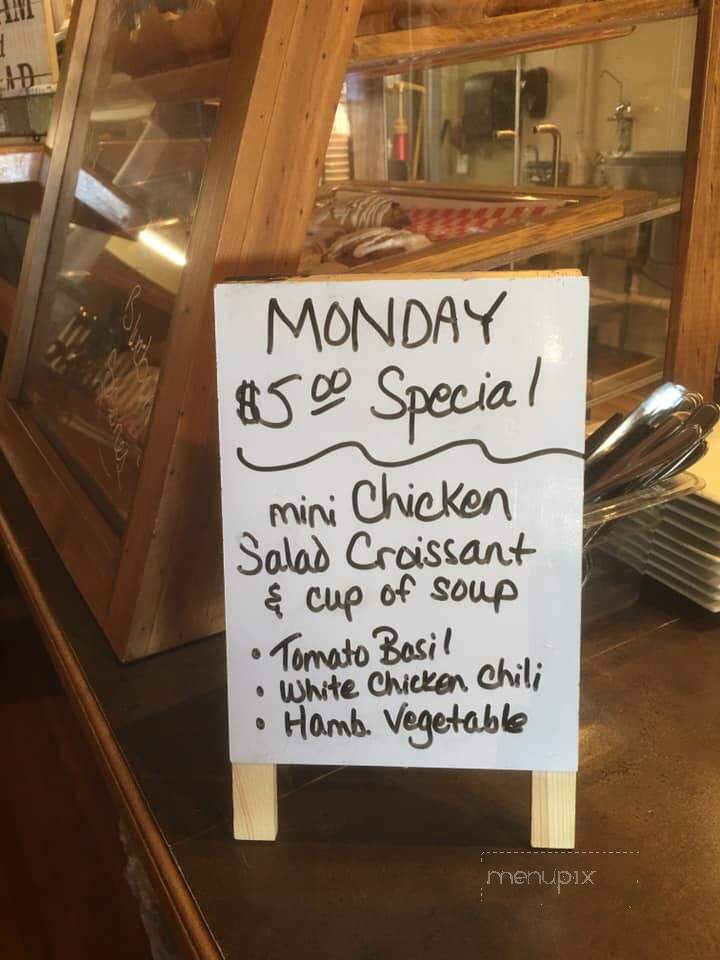 MONDAY
$5.00 Special
mini Chicken
Salad Croissant
& cup of soup
• Tomato Basil
• White Chicken Chili
• Hamb. Vegetable
menupix